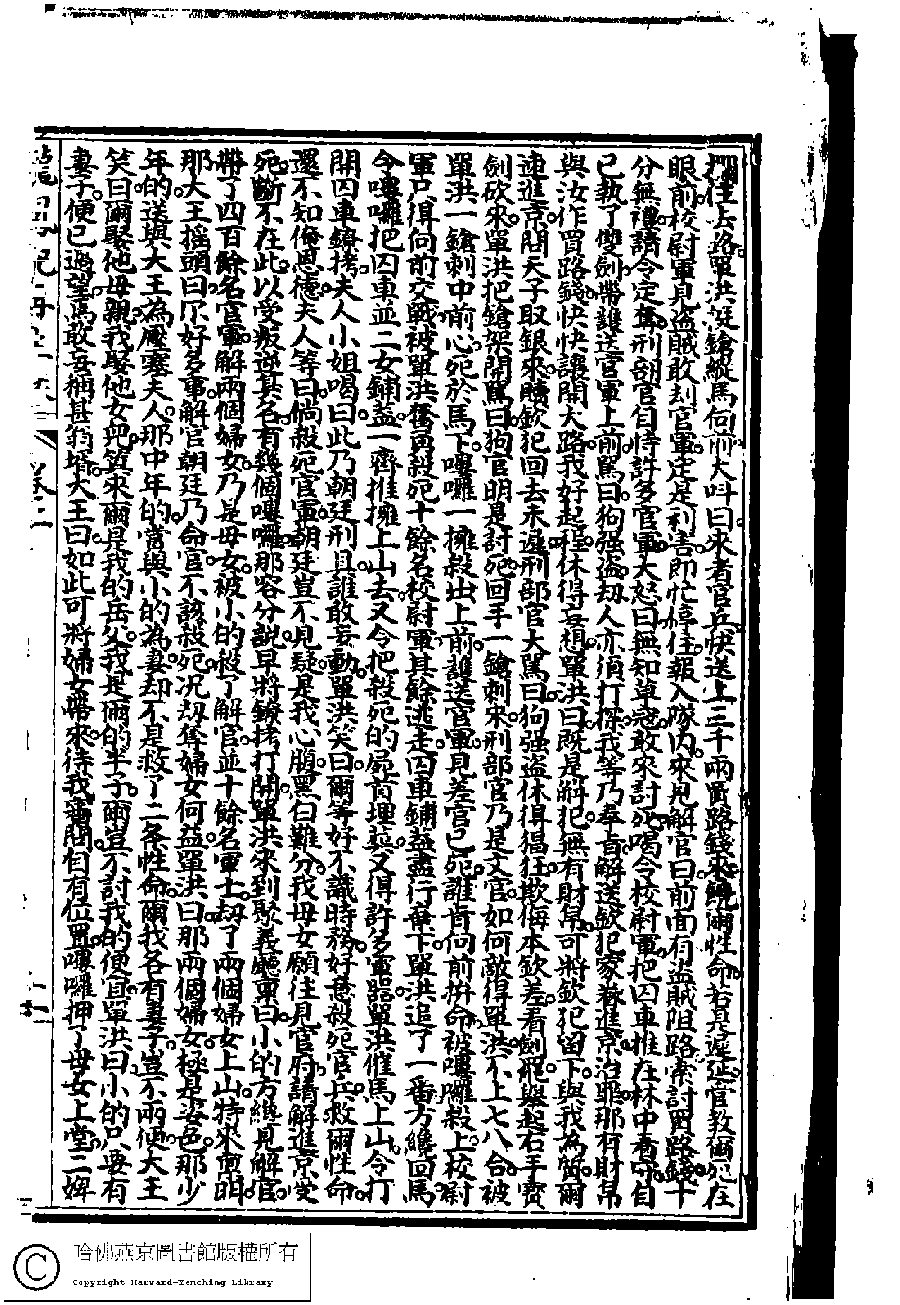 攔住去路單洪挺鎗縱馬向前大呌曰來者官兵快送上三千兩買路錢來饒爾性命若是遲延官教爾死在
眼前校尉軍見盗賊敢刦官軍定是利害即忙停住報入隊內來見解官曰前面有盗賊阻路索討買路錢十
分無禮請令定奪刑部官自恃許多官軍大怒曰無知草寇敢來討死喝令校尉軍把囚車推在林中看守自
己執了雙劍帶護送官軍上前罵曰狗强盗刧人亦須打探我等乃奉旨解送欽犯家眷進京治罪那有財帛
與汝作買路錢快快讓開大路我好起程休得妄想單洪曰既是解犯無有財帛可將欽犯留下與我為質爾
速進京問天子取銀來贖欽犯回去未遲刑部官大罵曰狗强盗休得猖狂欺侮本欽差看劍罷舉起右手寶
劍砍來單洪把鎗架開罵曰狗官明是討死回手一鎗刺來刑部官乃是文官如何敵得單洪不上七八合被
單洪一鎗刺中前心死於馬下嘍囉一擁殺出上前護送官軍見差官已死誰肯向前拚命被嘍囉殺上校尉
軍只得向前交戰被單洪奮勇殺死十餘名校尉軍其餘逃走囚車鋪蓋盡行棄下單洪追了一番方纔回馬
令嘍囉把囚車並二女鋪蓋一齊推擁上山去又令把殺死的屍首埋葬又得許多軍器單洪催馬上山令打
開囚車鐐拷夫人小姐喝曰此乃朝廷刑具誰敢妄動單洪笑曰爾等好不識時務好意殺死官兵救爾性命
還不知俺恩德夫人等曰倘殺死官軍朝廷豈不見疑是我心腹黑白難分我母女願往見官府請解進京受
死斷不在此以受叛逆其名有幾個嘍囉那容分說早將鐐拷打開單洪來到聚義廳稟曰小的方纔見解官
帶了四百餘名官軍解兩個婦女乃是母女被小的殺了解官並十餘名軍士刧了兩個婦女上山特來稟明
那大王搖頭曰爾好多事解官朝廷乃命官不該殺死况刧奪婦女何益單洪曰那兩個婦女極是姿色那少
年的送與大王為壓寨夫人那中年的當與小的為妻却不是救了二条性命爾我各有妻子豈不兩便大王
笑曰爾娶他母親我娶他女兒算來爾是我的岳父我是爾的半子爾豈不討我的便宜單洪曰小的只要有
妻子便已過望焉敢妄稱甚翁壻大王曰如此可將婦女帶來待我審問自有位置嘍囉押了母女上堂二婢
卷二
哈佛燕京圖書館版權所有
Copyright Harvard-Yenching Library